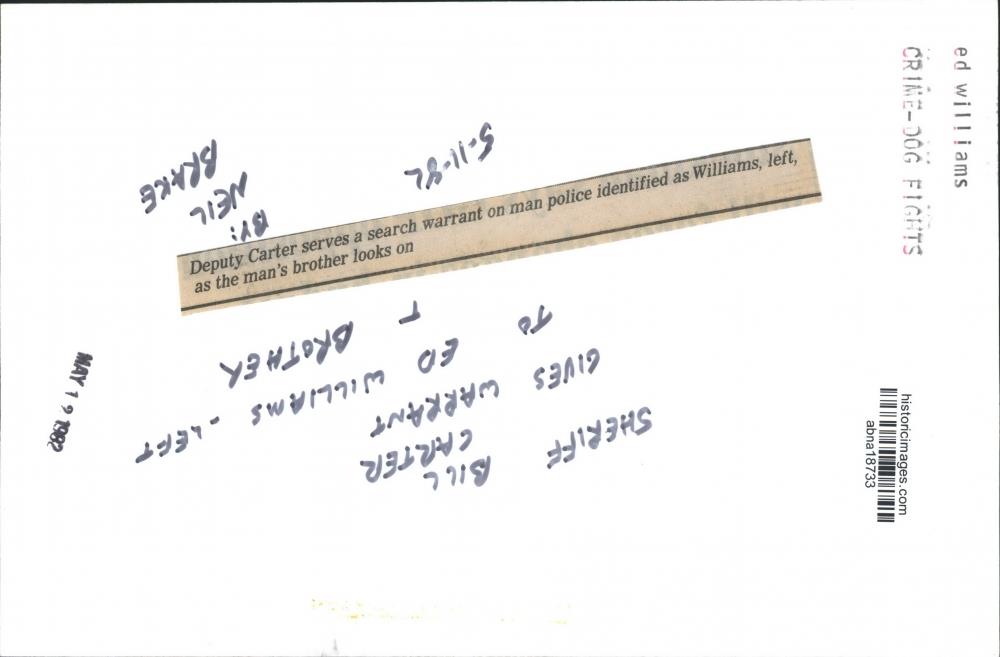 ed williams
CRIME-DOG FIGHTS
Deputy Carter serves a search warrant on man police identified as Williams, left,
as the man's brother looks on
SHERIFF BILL CARTER
GIVES WARRANT
TO ED WILLIAMS - LEFT
T BROTHER
5-11-82
BY:
NEIL
BRAKE
MAY 19 1982
historicimages.com
abna18733